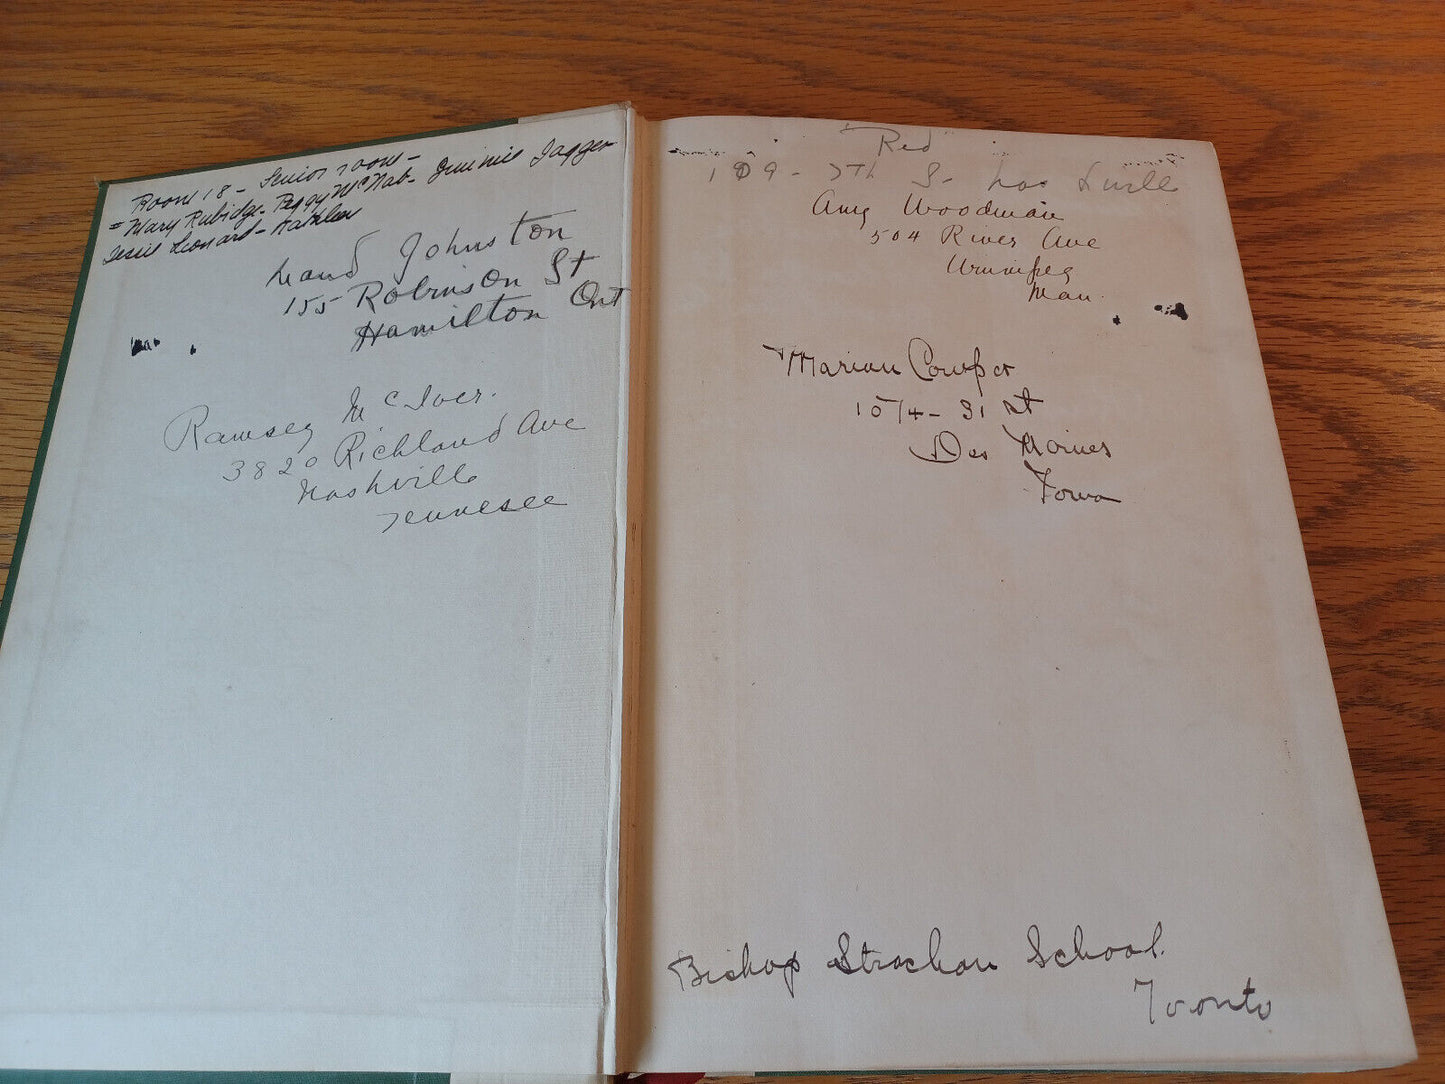 Room 18 - Senior room -
= Mary Rubidge - Peggy McNab - Jagger
Leonard - Kathleen
Johnston
155 Robinson St
Hamilton Ont
Ramsey McIver.
3820 Richland Ave
Nashville
Tennesee
"Red"
109 - 7th S-
Amy Woodman
504 River Ave
Winnipeg
Man.
Marian Cowper
1074 - 31 st
Des Moines
Iowa
Bishop Strachan School.
Toronto